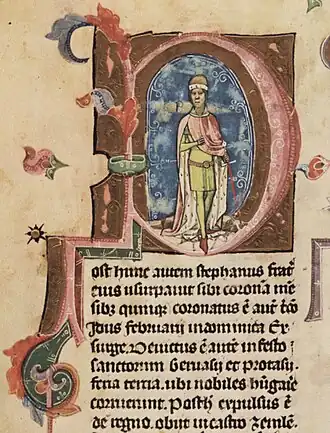 P
ost hunc autem stephanus frat͛
eius usurpauit sibi coronā mē
sib; quinq; coronatus ē aūt t̄co
Idus februarii in dominica Ex
surge. Deuictus ē autē in festo
sanctorum Geruasij et protasij.
feria tercia. ubi nobiles hūgarie
corruerunt. Posteā expulsus ē
de regno. obijt in castro zemlēn.